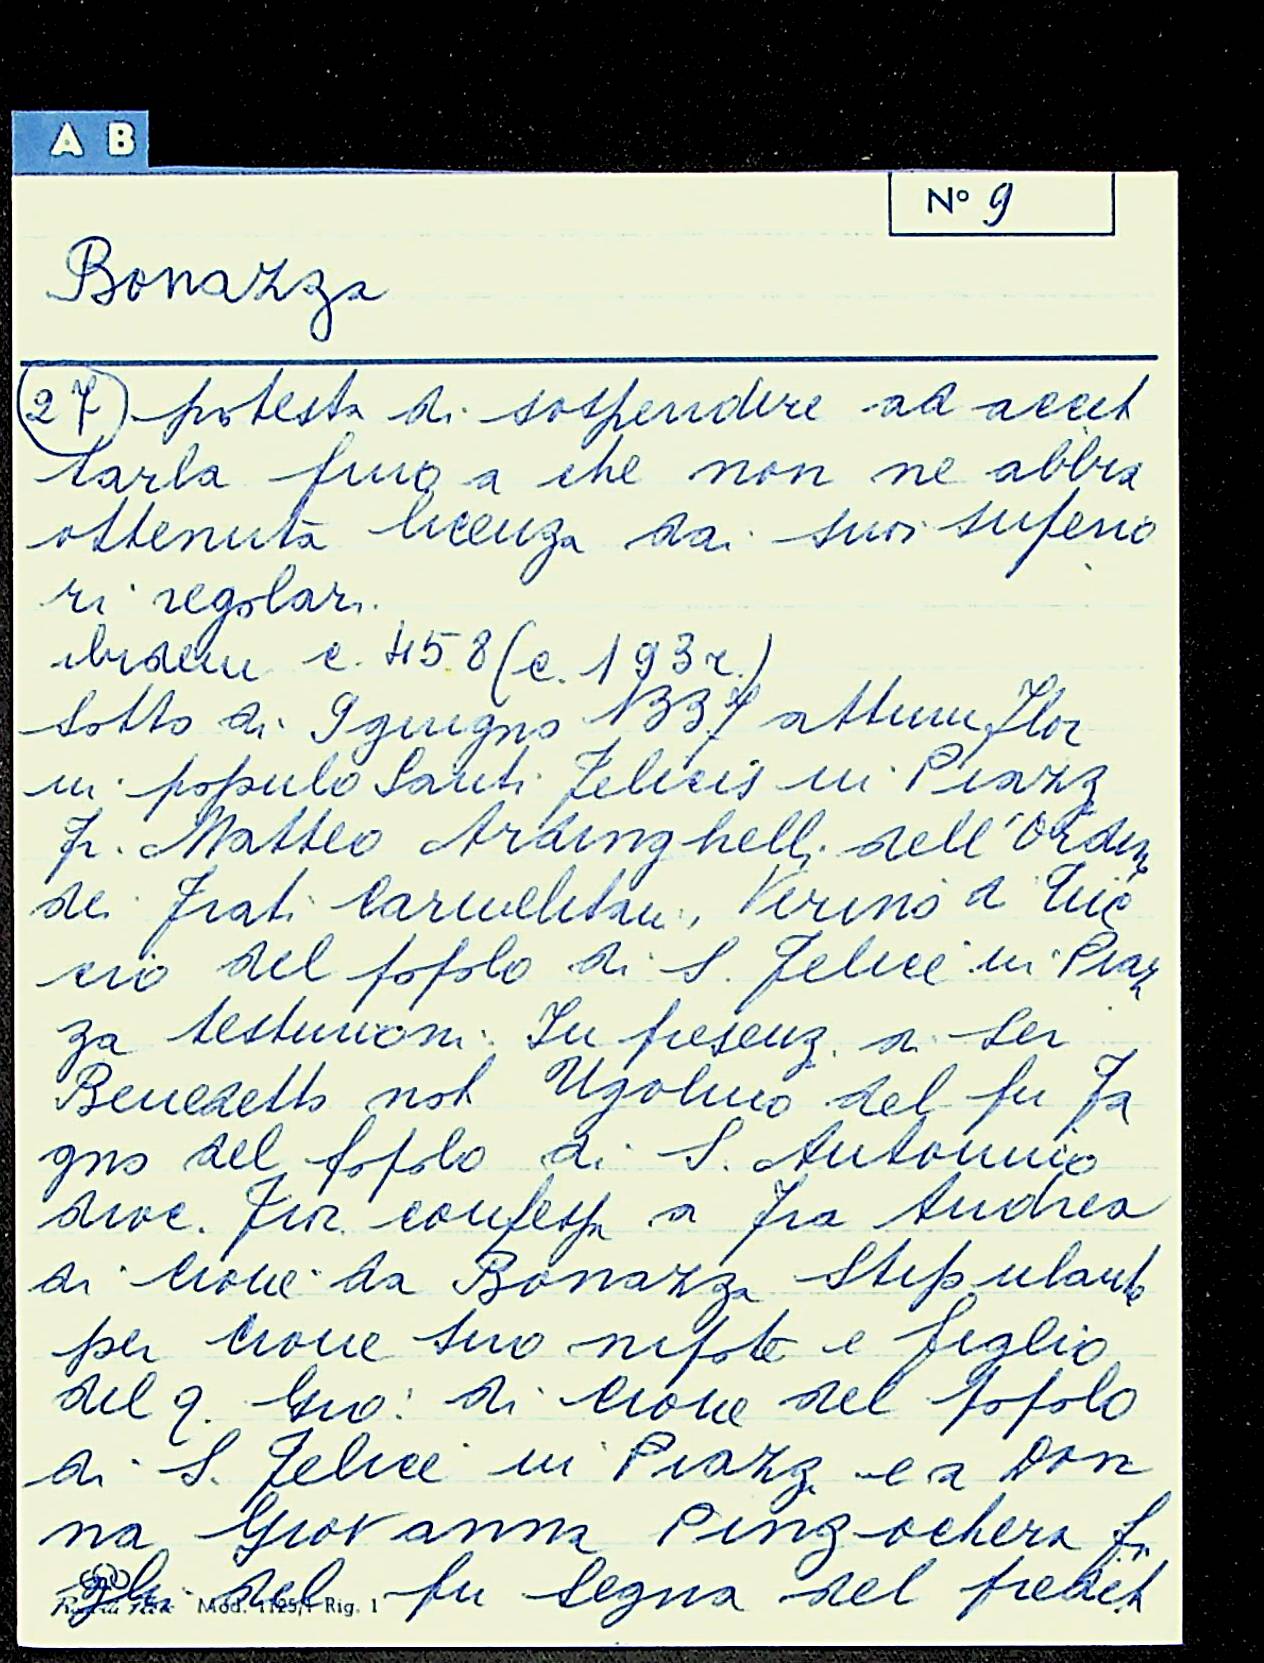 A B
N° 9
Bonazza
27) protesta di sospendere ad accet
tarla fino a che non ne abbia
ottenuta licenza dai suoi superio
ri regolari.
ibidem c. 458 (c. 193 r.)
Sotto di 9 giugno 1337 actum Flor
in populo Santi Felicis in Piazz
fr. Matteo Ardinghelli dell'Ordin
dei Frati Carmelitani, Verino di
cio del popolo di S. Felice in Piaz
za testimoni. In presenz. di Ser
Benedetto not Ugolino del fu Fa
gno del popolo di S. Antonino
dioc. Fior. confessa a Fra Andrea
di Cione da Bonazza Stipulante
per Cione suo nipote e figlio
del q. Gio: di Cione del popolo
di S. Felice in Piazz e a Don
na Giovanna Pinzochera fi
glia del fu Segna del predet
Mod. 1125/1 Rig. 1